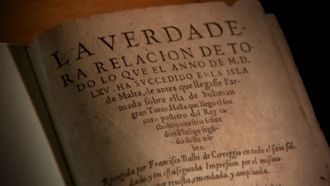 LA VERDADE-
RA RELACION DE TO-
DO LO QUE EL ANNO DE M.D.
LXV. HA SVCCEDIDO EN LA ISLA
de Malta, de antes que llegasse l'ar-
mada sobre ella de Soliman
gran Turco. Hasta que llego el soc-
corro postrero del Rey ca-
tholico nuestro señor
don Phelipe segũ-
do deste nõ-
bre.
Recogida por Francisco Balbi de Correggio en todo el sitio sol-
dado, y en esta segunda Impression por el mismo
Autor reuista, emendada y ampliada.